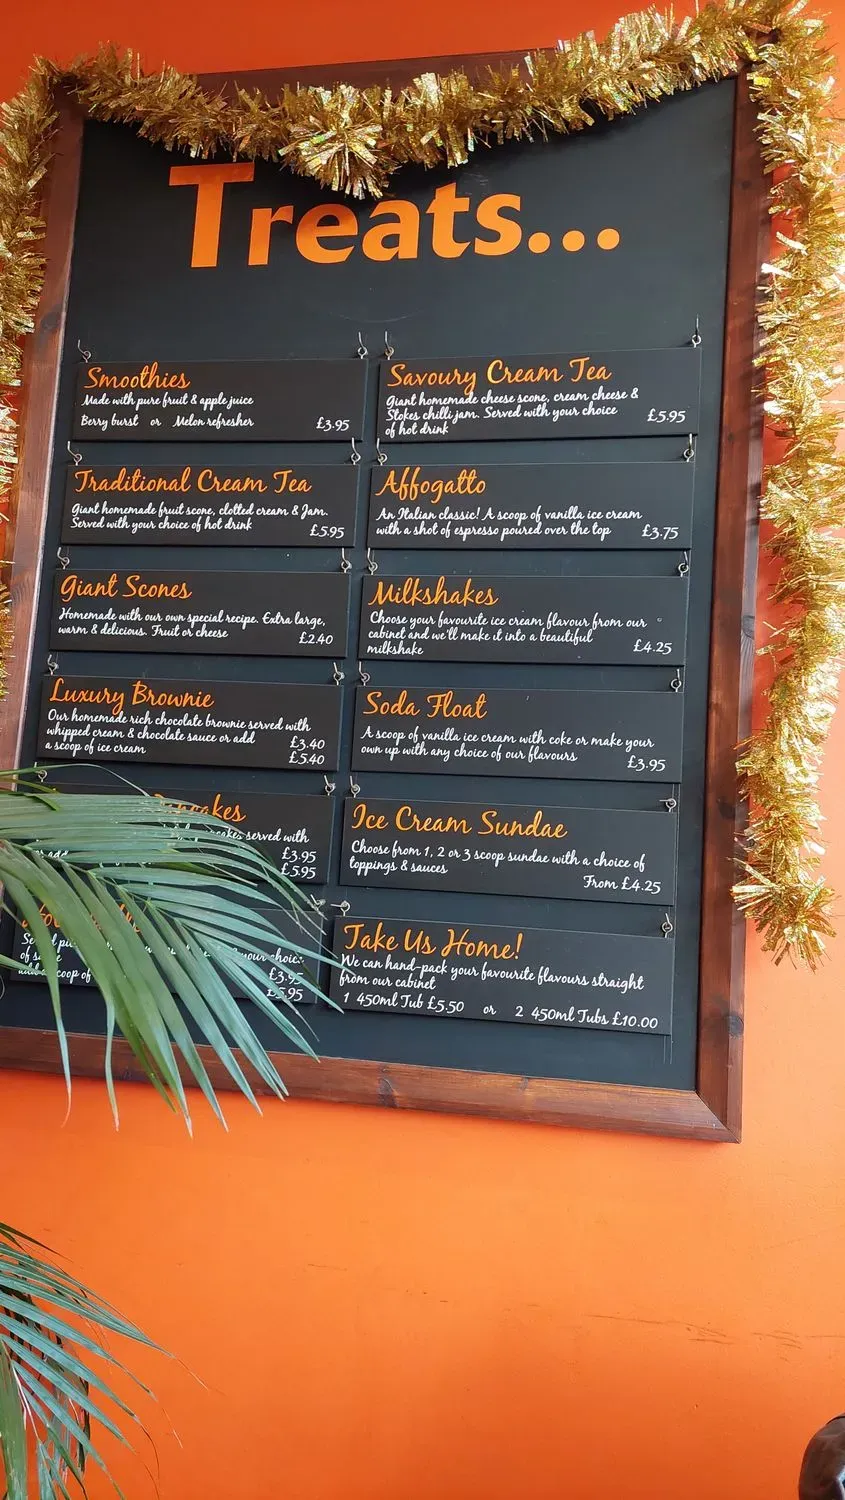 Treats...
Smoothies
Made with pure fruit & apple juice
Berry burst or Melon refresher £3.95
Traditional Cream Tea
Giant homemade fruit scone, clotted cream & Jam.
Served with your choice of hot drink £5.95
Giant Scones
Homemade with our own special recipe. Extra large,
warm & delicious. Fruit or cheese £2.40
Luxury Brownie
Our homemade rich chocolate brownie served with
whipped cream & chocolate sauce or add £3.40
a scoop of ice cream £5.40
Pancakes
served with
or add £3.95
£5.95
your choice
of £3.95
scoop of £5.95
Savoury Cream Tea
Giant homemade cheese scone, cream cheese &
Stokes chilli jam. Served with your choice £5.95
of hot drink
Affogatto
An Italian classic! A scoop of vanilla ice cream
with a shot of espresso poured over the top £3.75
Milkshakes
Choose your favourite ice cream flavour from our
cabinet and we'll make it into a beautiful £4.25
milkshake
Soda Float
A scoop of vanilla ice cream with coke or make your
own up with any choice of our flavours £3.95
Ice Cream Sundae
Choose from 1, 2 or 3 scoop sundae with a choice of
toppings & sauces
From £4.25
Take Us Home!
We can hand-pack your favourite flavours straight
from our cabinet
1 450ml Tub £5.50 or 2 450ml Tubs £10.00